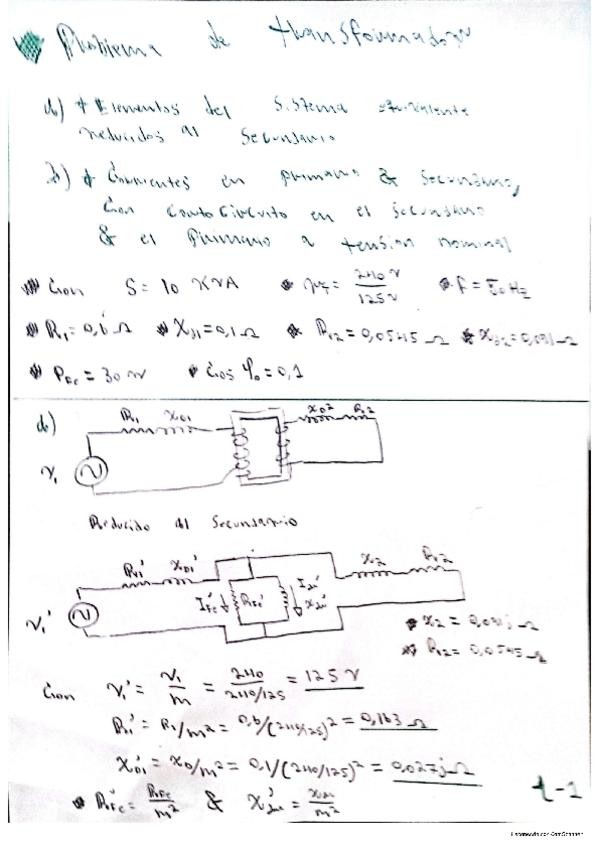 Problema de transformador
a) * Elementos del Sistema equivalente
reducidos al Secundario
b) * Corrientes en primario & Secundario,
Con Cortocircuito en el Secundario
& el Primario a tensión nominal
Con S = 10 KVA * = 240 V / 125 V * F = Hz
* R1 = 0,6 Ω * XD1 = 0,1 Ω * R2 = 0,0545 Ω * XD2 = 0,091 Ω
* PFe = 30 W * Cos φ0 = 0,1
a) R1 XD1 XD2 R2
V1
Reducido al Secundario
R1' XD1' X2 R2
IFe' RFe' Xμ'
V1'
* X2 = 0,091j Ω
* R2 = 0,0545 Ω
Con V1' = V1/m = 240 / 240/125 = 125 V
R1' = R1/m² = 0,6/(240/125)² = 0,163 Ω
XD1' = XD/m² = 0,1/(240/125)² = 0,027j Ω
* RFe' = RFe/m² & Xμ' = Xμ/m²
t-1
Escaneado con CamScanner